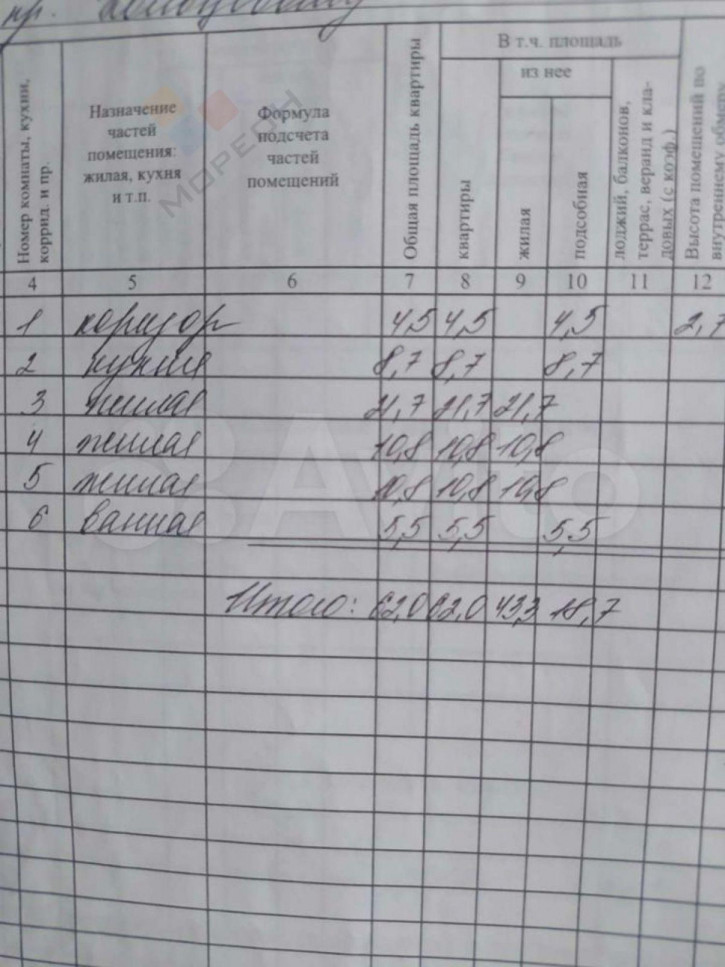 пр.
Номер комнаты, кухни, коррид. и пр.
Назначение частей помещения: жилая, кухня и т.п.
Формула подсчета частей помещений
Общая площадь квартиры
В т.ч. площадь
из нее
квартиры
жилая
подсобная
лоджий, балконов, террас, веранд и кладовых (с коэф.)
Высота помещений по внутреннему обмеру
4 5 6 7 8 9 10 11 12
1 коридор 4,5 4,5 4,5 2,7
2 кухня 8,7 8,7 8,7
3 жилая 21,7 21,7 21,7
4 жилая 10,8 10,8 10,8
5 жилая 10,8 10,8 10,8
6 ванная 5,5 5,5 5,5
Итого: 62,0 62,0 43,3 18,7
МОРЕОН
Avito